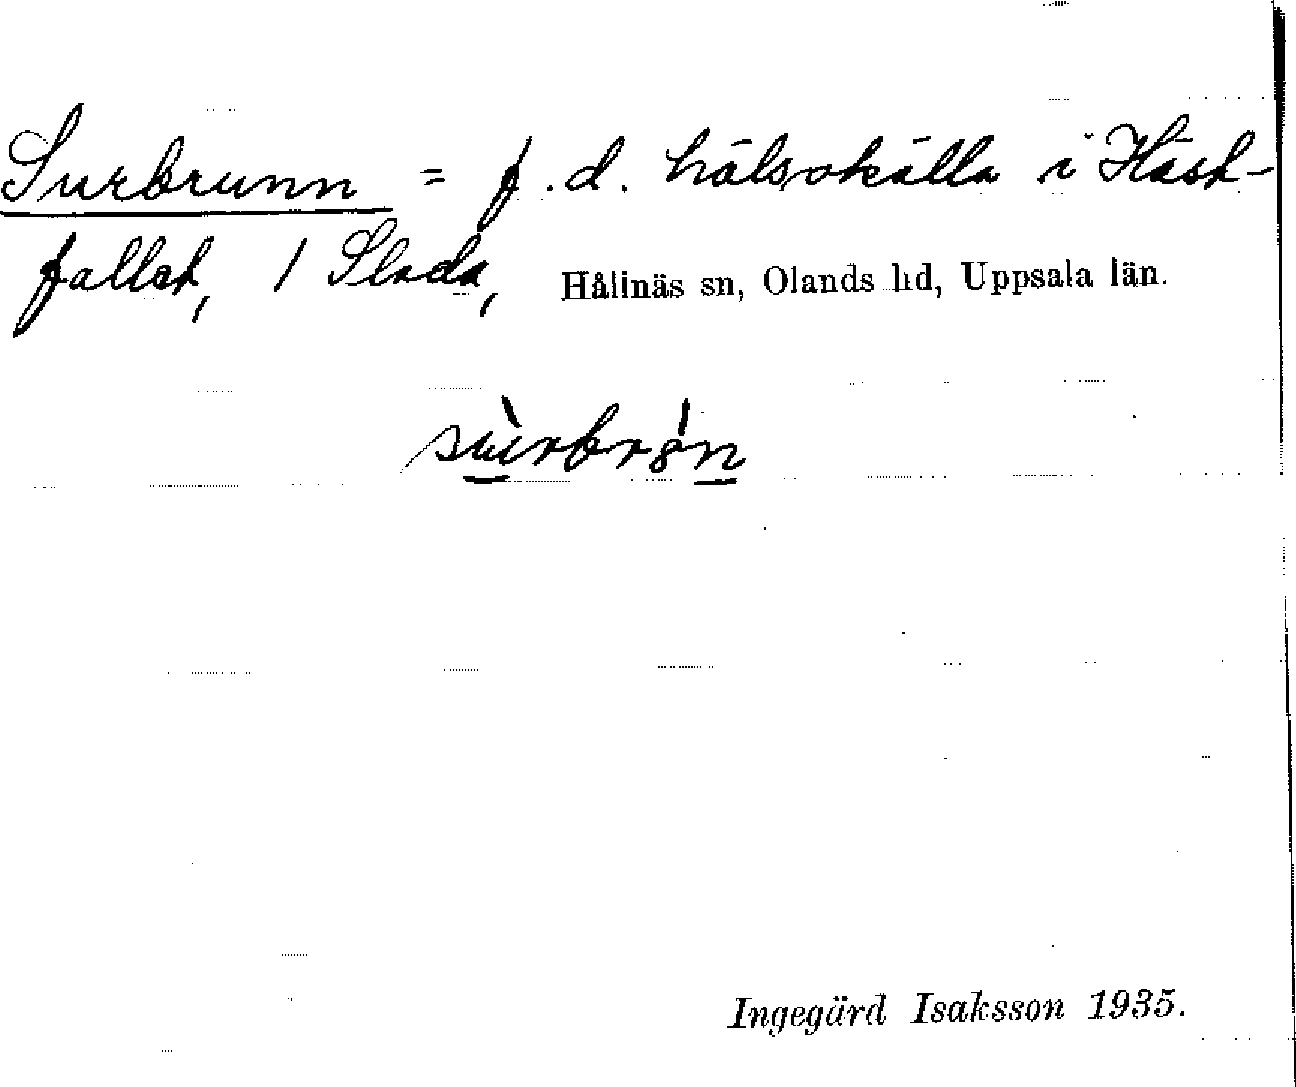 Surbrunn = f.d. hälsokälla i Häst-
fallet, 1 Slada, Hållnäs sn, Olands hd, Uppsala län.
sùrbrón
Ingegärd Isaksson 1935.